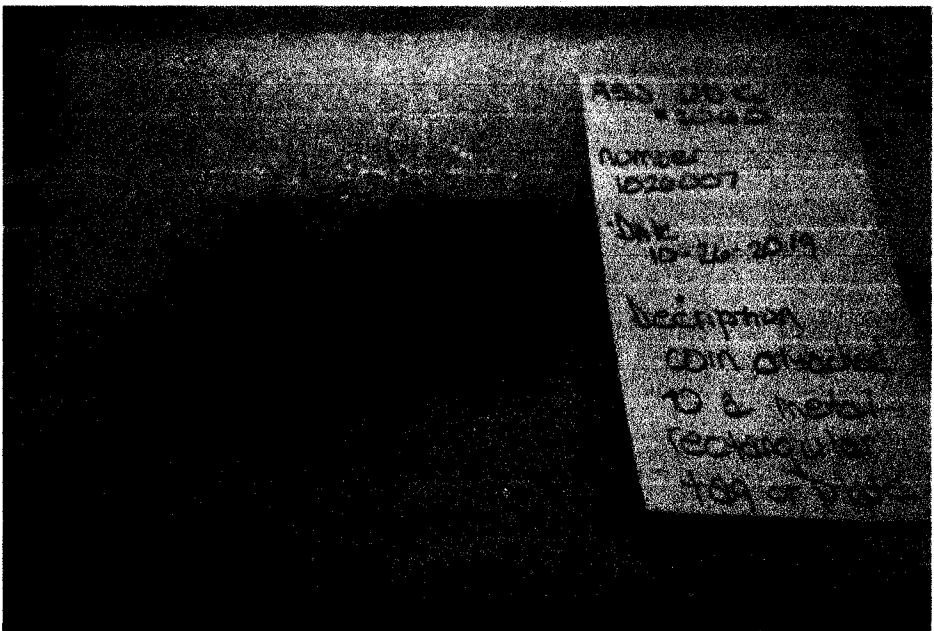 number
1026007
Date
10-26-2019
Decription
coin attached
TO a metal
rectangular
tag or